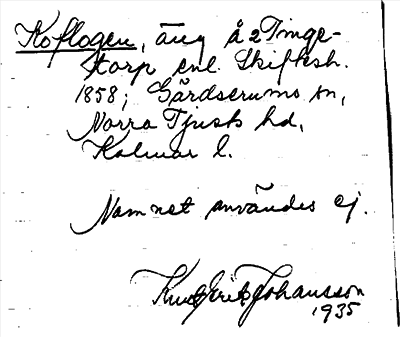 Koflogen, äng å 2 Tinge-
storp enl. Skifteh.
1858; Gärdserums sn,
Norra Tjusts hd,
Kalmar l.
Namnet användes ej.
Knut Erik Johansson
1935